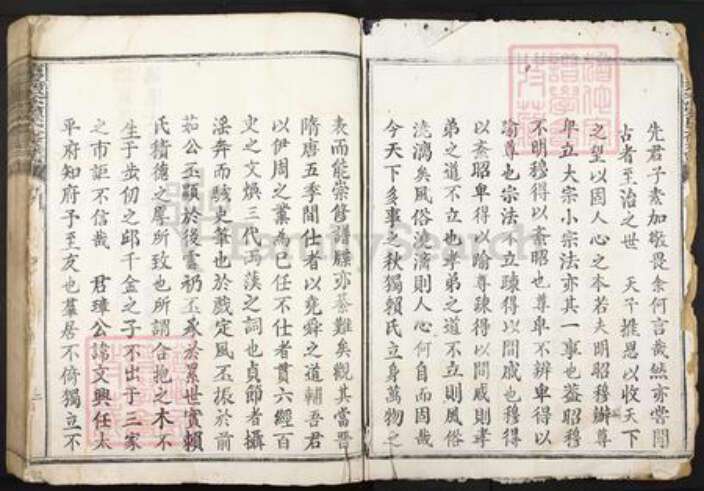 先君子素加敬畏余何言哉然亦嘗聞
古者至治之世 天子推恩以收天下
之望以因人心之本若夫明昭穆辨尊
卑立大宗小宗法亦其一事也蓋昭穆
不明穆得以紊昭也尊卑不辨卑得以
踰尊也宗法不立疎得以間戚也穆得
以紊昭卑得以踰尊疎得以間戚則孝
弟之道不立也孝弟之道不立則風俗
澆漓矣風俗澆漓則人心何自而固哉
今天下多事之秋獨賴氏立身萬物之
表而能崇修譜牒亦綦難矣觀其當晉
隋唐五季間仕者以堯舜之道輔吾君
以伊周之業為己任不仕者貫六經百
史之文煥三代兩漢之詞也貞節者攝
淫奔而駭史筆也於戲定風丕振於前
茹公丕顯於後雲礽丕承於累世實賴
氏積德之厚所致也所謂合抱之木不
生于步仞之邱千金之子不出于三家
之市詎不信哉 君璋公諱文興任太
平府知府予至友也羣居不倚獨立不
二
FamilySearch